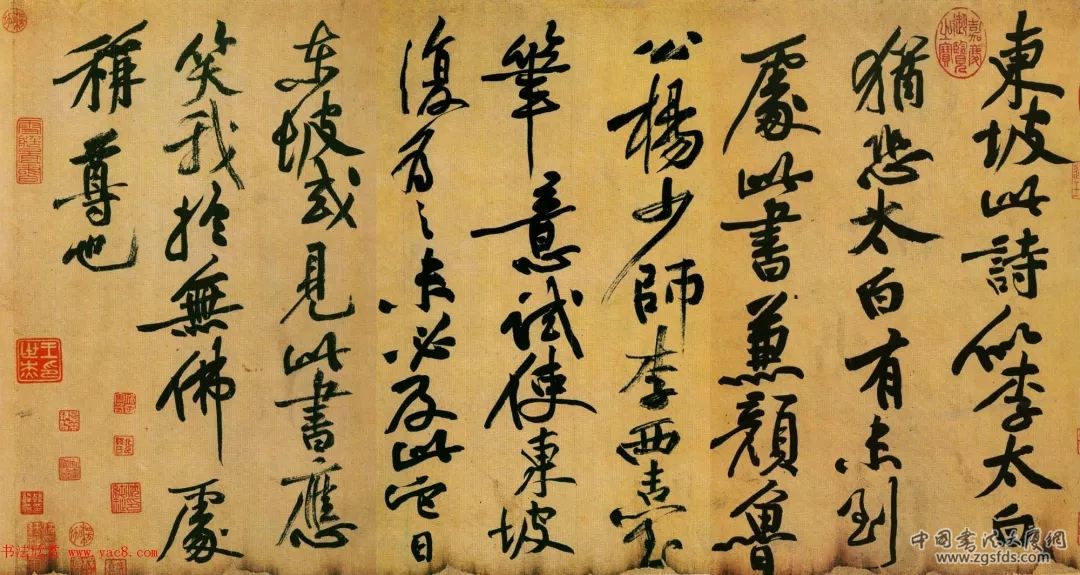 東坡此詩似李太白
猶恐太白有未到
處此書兼顏魯
公楊少師李西臺
筆意試使東坡
復為之未必及此它日
東坡或見此書應
笑我於無佛處
稱尊也
嘉慶御覽之寶
书法欣赏 www.yac8.com
中国书法大厦网
www.zgsfds.com